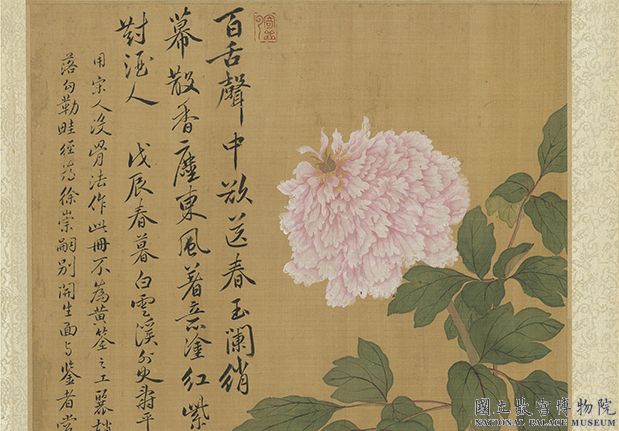 百舌聲中欲送春玉闌綃
幕散香塵東風著意塗紅紫
對酒人
戊辰春暮白雲溪外史壽平
用宋人沒骨法作此冊不為黃筌之工麗
落勾勒畦徑為徐崇嗣別開生面與鑒者
國立故宮博物院
NATIONAL PALACE MUSEUM